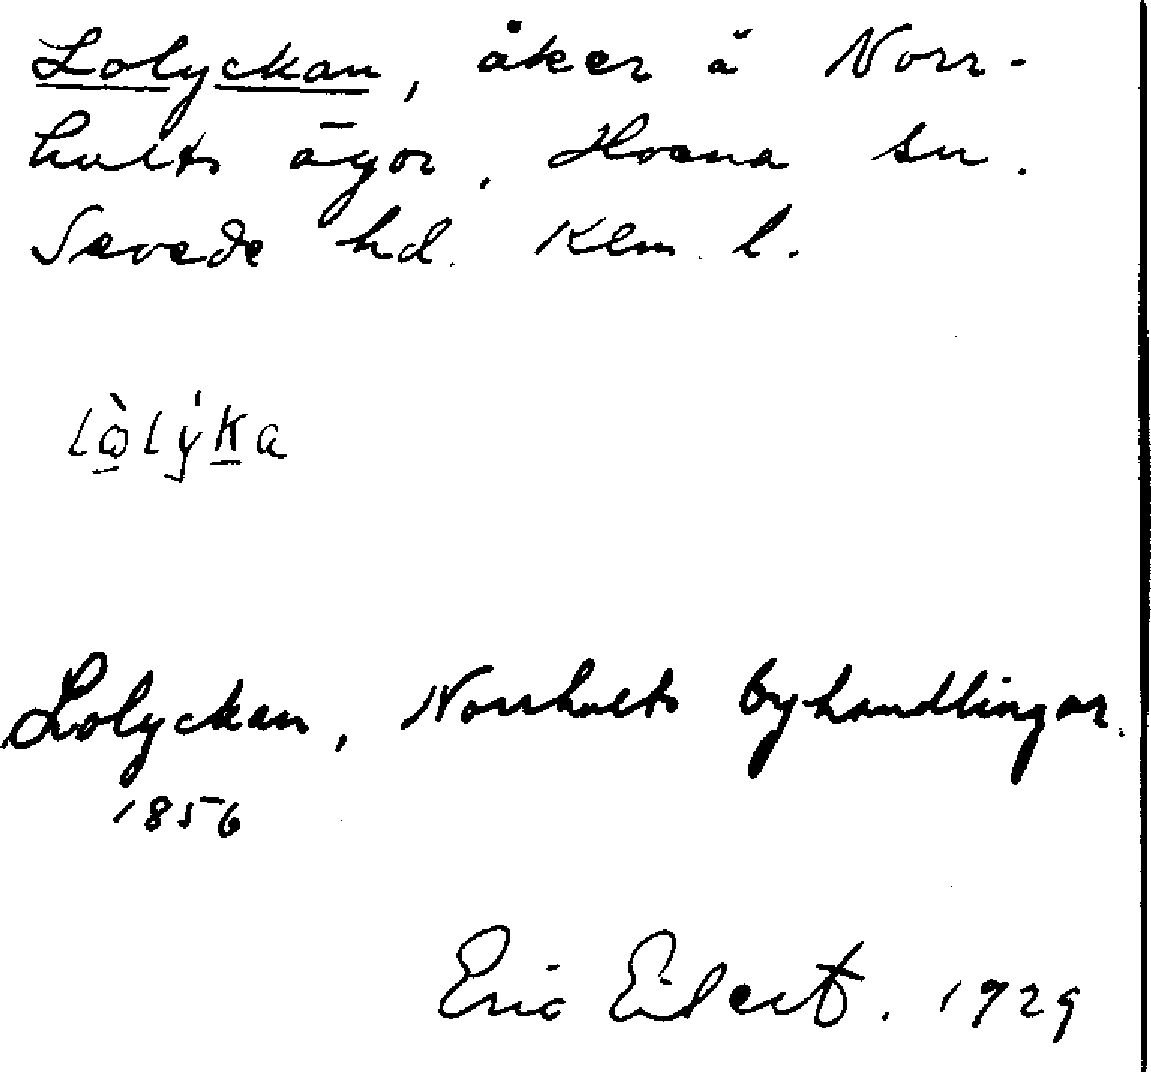 Lolyckan, åker å Norr-
hults ägor, Hvena sn.
Sevede hd. Klm. l.
Lolyckan, Norrhults byhandlingar.
1856
Eric Eilert. 1929